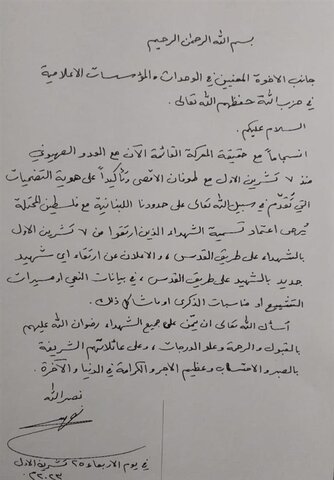 بسم الله الرحمن الرحيم
جانب الاخوة المعنيين في الوحدات والمؤسسات الاعلامية
في حزب الله حفظهم الله تعالى.
السلام عليكم.
انسجاماً مع حقيقة المعركة القائمة الآن مع العدو الصهيوني
منذ ٧ تشرين الاول مع طوفان الاقصى وتأكيداً على هوية التضحيات
التي تُقدّم في سبيل الله تعالى على حدودنا اللبنانية مع فلسطين المحتلة
يُرجى اعتماد تسمية الشهداء الذين ارتقوا من ٧ تشرين الاول
بالشهداء على طريق القدس، والاعلان عن ارتقاء اي شهيد
جديد بالشهيد على طريق القدس، في بيانات النعي او مسيرات
التشييع او مناسبات الذكرى او ما شاكل ذلك.
أسأل الله تعالى ان يمنّ على جميع الشهداء رضوان الله عليهم
بالقبول والرحمة وعلو الدرجات، وعلى عائلاتهم الشريفة
بالصبر والاحتساب وعظيم الاجر والكرامة في الدنيا والآخرة.
نصر الله
في يوم الاربعاء ٢٥ تشرين الاول
٢٠٢٣م.